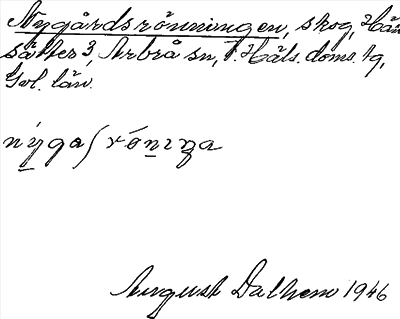 Nygårdsrönningen, skog, Hån
sätter 3, Arbrå sn, V. Häls. doms. tg,
Gvl. län.
August Dalhem 1946